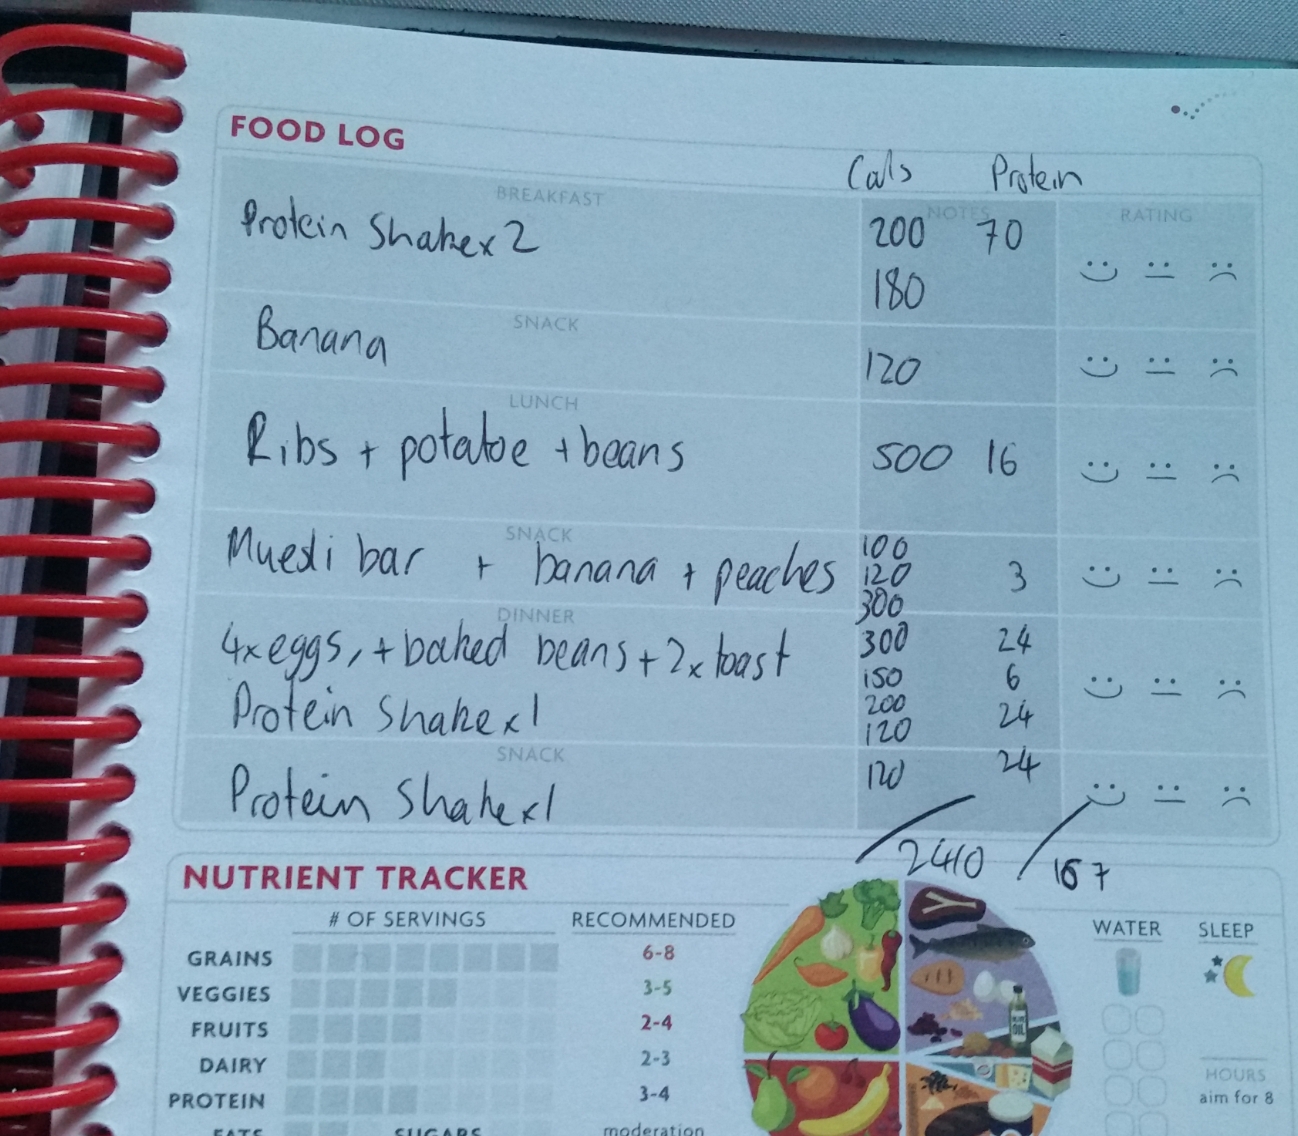 FOOD LOG
Cals Protein
BREAKFAST NOTES RATING
Protein Shakex2 200 70
180
SNACK
Banana 120
LUNCH
Ribs + potatoe + beans 500 16
SNACK
Muesli bar + banana + peaches 100
120 3
300
DINNER
4x eggs, + baked beans + 2x toast 300 24
150 6
Protein Shakex1 200
120 24
SNACK
Protein Shakex1 120 24
2410 167
NUTRIENT TRACKER
# OF SERVINGS RECOMMENDED WATER SLEEP
GRAINS 6-8
VEGGIES 3-5
FRUITS 2-4
DAIRY 2-3
PROTEIN 3-4
HOURS
aim for 8
FATS SUGARS moderation
OIL